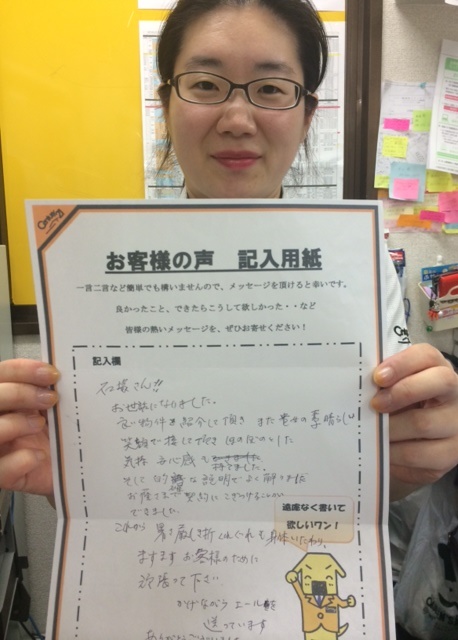 お客様の声 記入用紙
一言二言など簡単でも構いませんので、メッセージを頂けると幸いです。
良かったこと、できたらこうして欲しかった・・など
皆様の熱いメッセージを、ぜひお寄せください！
記入欄
さん!!
お世話になりました。
良い物件を紹介して頂き また貴女の素晴らしい
笑顔で接して頂き
気持 安心感を
そして 的確な説明でよく解り
お陰さまで契約にこぎつけることが
できました。
これから 暑さ厳しき折 くれぐれも身体いたわり、
ますます お客様のために
頑張って下さい
かげながら エールを
送っています
ありがとうございました
遠慮なく書いて
欲しいワン！